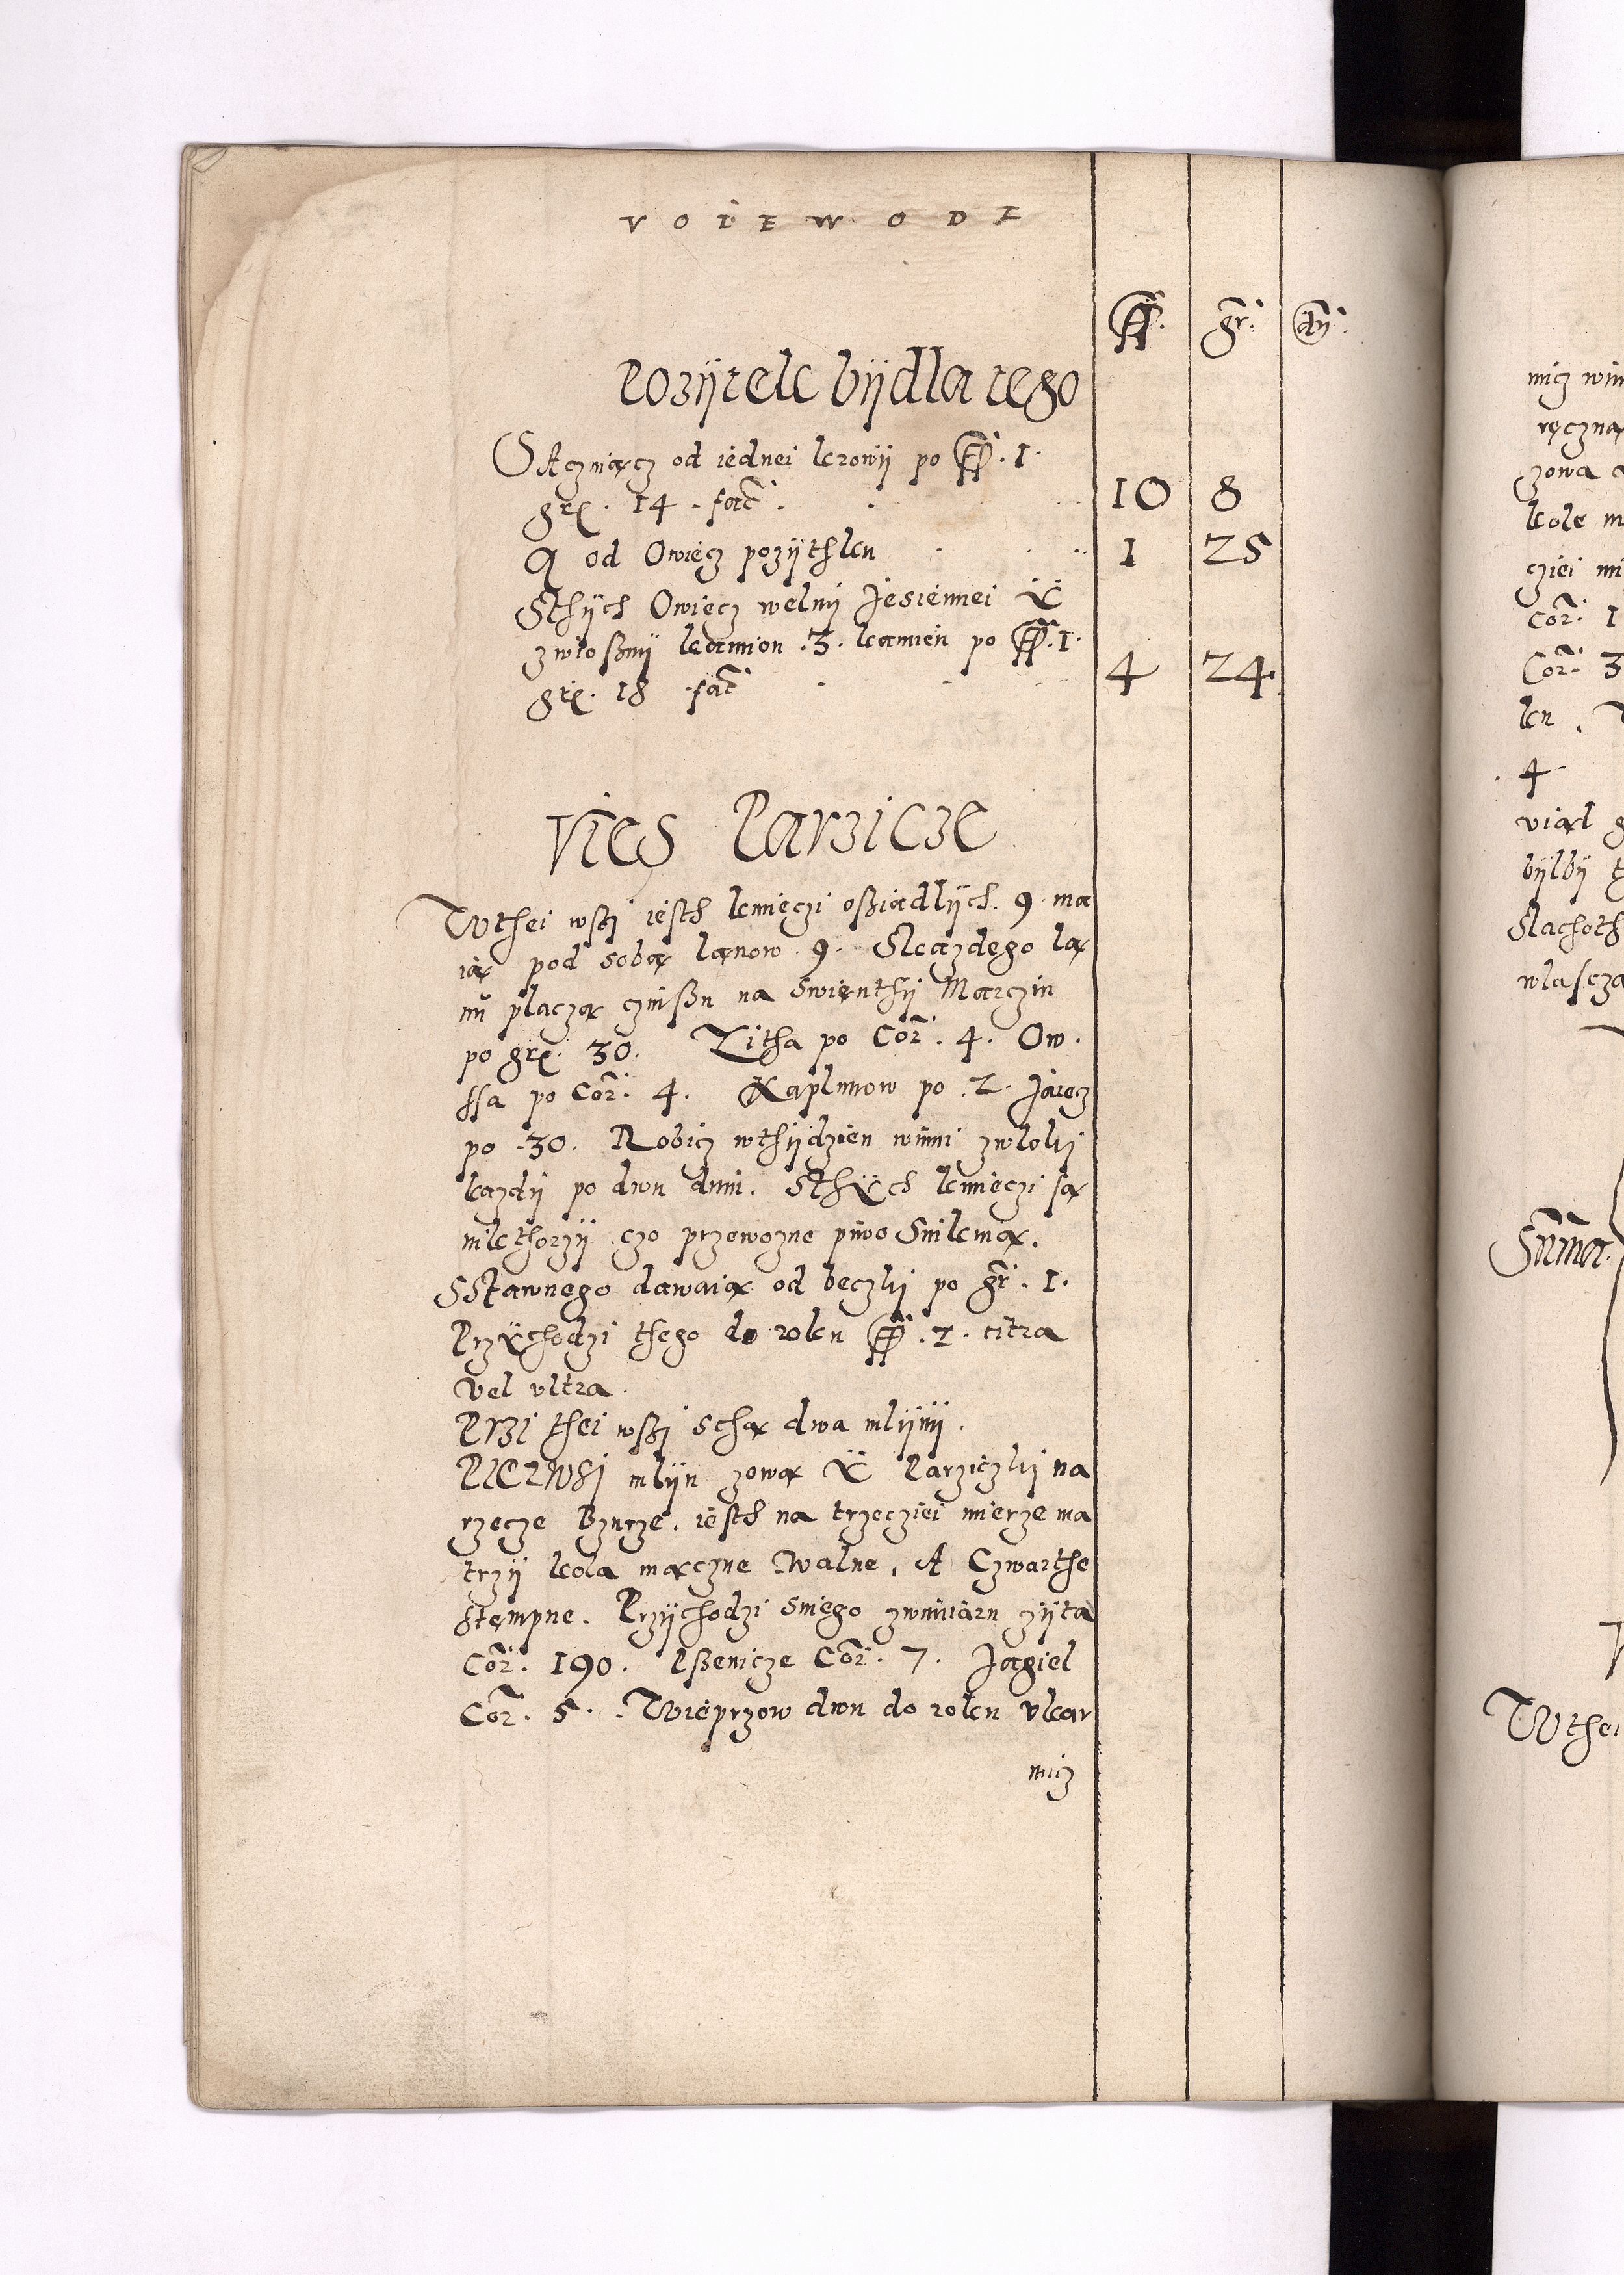 VOIEWODI
ff. gr. dn.
Pozÿtek bÿdla tego
SAcznącz od iednei krowÿ po ff. 1.
grʒ. 14. fac̃. 10 8
A od Owiecz pozÿthku 1 25
Sthÿch Owiecz welnÿ Jesiennei Ÿ
zwiosznÿ kamion .3. kamień po ff. 1.
grʒ. 18 fac̃ 4 24.
Vies Parzicze
Wthei wsÿ iesth kmięczi osziadlÿch. 9. ma
ią pod sobą lanow .9. Skazdego la
nu placzą czinszu na Swięnthÿ Marczin
po grʒ. 30. Zitha po Cor̃. 4. Ow.
ssa po Cor̃. 4. Kaplunow po .2. Jaiecz
po .30. Robicz wthÿdzien winni zwlokÿ
kazdÿ po dwu dnni. SthYch kmięczi są
niktorzÿ czo przewozne piwo Sinkuią.
SStawnego dawaią od beczkÿ po gr̃. 1.
PrzYchodzi thego do roku ff. 2. citra
vel vltra.
Przi thei wszÿ schą dwa mlÿnÿ.
PIERWSÿ mlÿn zową Ÿ Parziczkÿ na
rzecze Bzurze. iesth na trzecziei mierze ma
trzÿ kola mączne Walne, A Czwarthe
stęmpne. Przÿchodzi Sniego zwmiaru zÿta
Cor̃. 190. Pszenicze Cor̃. 7. Jagiel
Cor̃. 5. Wieprzow dwu do roku vkar
micz
micz
ręczną
zowa
kole
cziei
Cor̃. 1
Cor̃. 3
ku.
4.
viąl
bÿlbÿ
Slachoth
wlascza
Sum̃ma.
Wthei